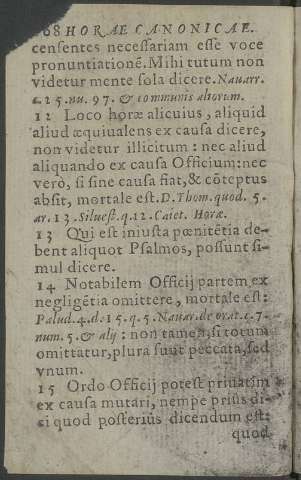 68 HORAE CANONICAE.
censentes necessariam esse voce
pronuntiationẽ. Mihi tutum non
videtur mente sola dicere. Nauarr.
c. 25. nu. 97. & communis aliorum.
12 Loco horæ alicuius, aliquid
aliud æquiualens ex causa dicere,
non videtur illicitum: nec aliud
aliquando ex causa Officium: nec
verò, si sine causa fiat, & cõteptus
absit, mortale est. D. Thom. quod. 5.
ar. 13. Siluest. q. 12. Caiet. Horæ.
13 Qui est iniusta pœnitẽtia de-
bent aliquot Psalmos, possunt si-
mul dicere.
14 Notabilem Officij partem ex
negligẽtia omittere, mortale est:
Palud. 4. d. 15. q. 5. Nauar. de orat. c. 7.
num. 5. & alij: non tamen, si totum
omittatur, plura suut peccata, sed
vnum.
15 Ordo Officij potest priuatim
ex causa mutari, nempe prius di-
ci quod posterius dicendum est:
quod